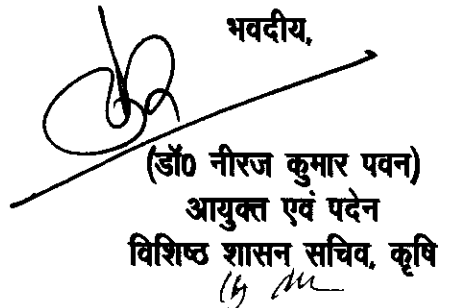 भवदीय,
(डॉ0 नीरज कुमार पवन)
आयुक्त एवं पदेन
विशिष्ठ शासन सचिव, कृषि